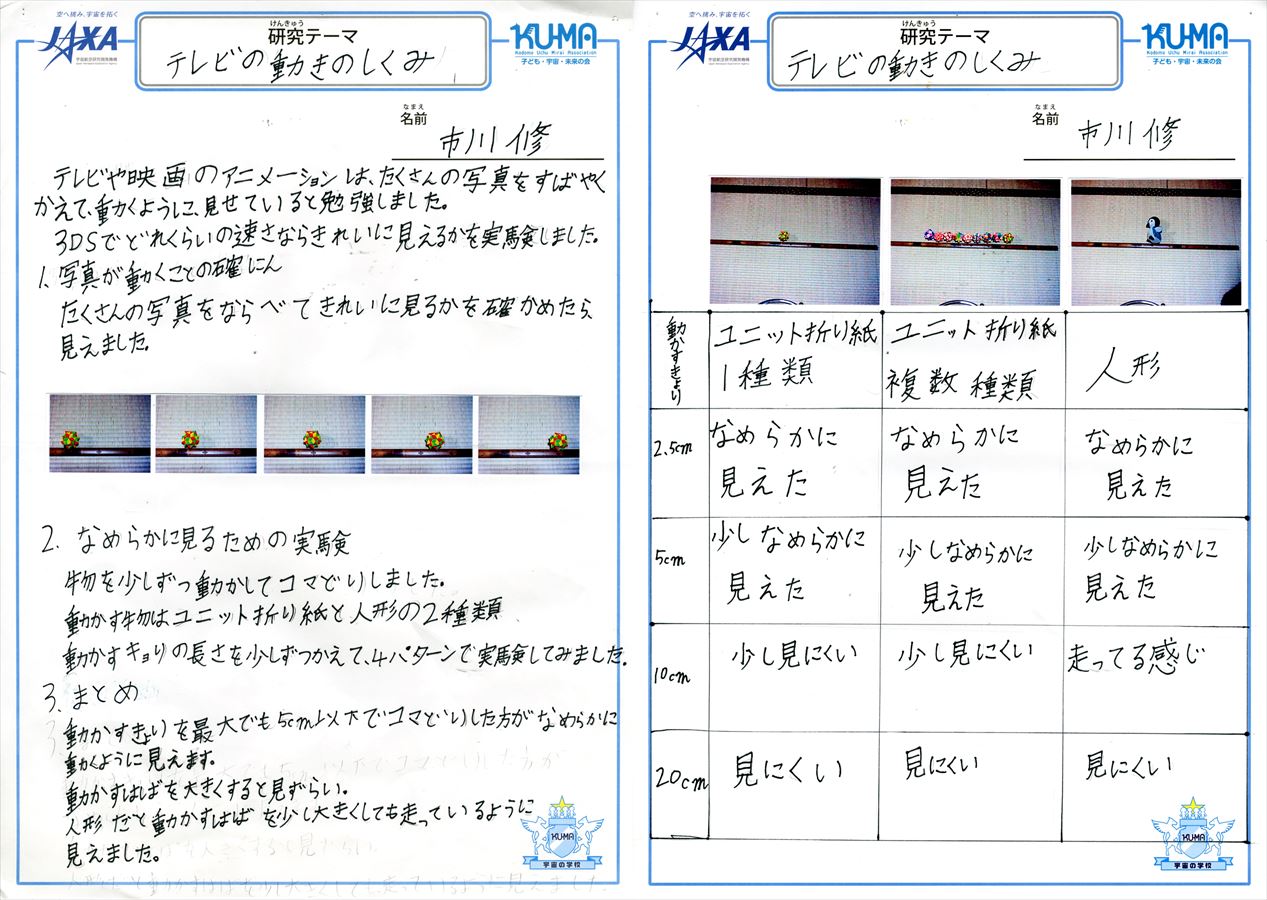 空へ挑み、宇宙を拓く
JAXA
宇宙航空研究開発機構
けんきゅう
研究テーマ
テレビの動きのしくみ
KU-MA
Kodomo Uchu Mirai Association
子ども・宇宙・未来の会
なまえ
名前
市川 修
テレビや映画のアニメーションは、たくさんの写真をすばやく
かえて、動くように、見せていると勉強しました。
3DSでどれくらいの速さならきれいに見えるかを実験しました。
1. 写真が動くことの確にん
たくさんの写真をならべてきれいに見るかを確かめたら、
見えました。
2. なめらかに見るための実験
物を少しずつ動かしてコマどりしました。
動かす物はユニット折り紙と人形の2種類
動かすキョリの長さを少しずつかえて、4パターンで実験してみました。
3. まとめ
動かすきょりを最大でも5cm以下でコマどりした方がなめらかに
動くように見えます。
動かすはばを大きくすると見ずらい。
人形だと動かすはばを少し大きくしても走っているように
見えました。
KU-MA
宇宙の学校
空へ挑み、宇宙を拓く
JAXA
宇宙航空研究開発機構
けんきゅう
研究テーマ
テレビの動きのしくみ
KU-MA
Kodomo Uchu Mirai Association
子ども・宇宙・未来の会
なまえ
名前
市川 修
動かすきょり
ユニット折り紙
1種類
ユニット折り紙
複数種類
人形
2.5cm
なめらかに
見えた
なめらかに
見えた
なめらかに
見えた
5cm
少しなめらかに
見えた
少しなめらかに
見えた
少しなめらかに
見えた
10cm
少し見にくい
少し見にくい
走ってる感じ
20cm
見にくい
見にくい
見にくい
KU-MA
宇宙の学校